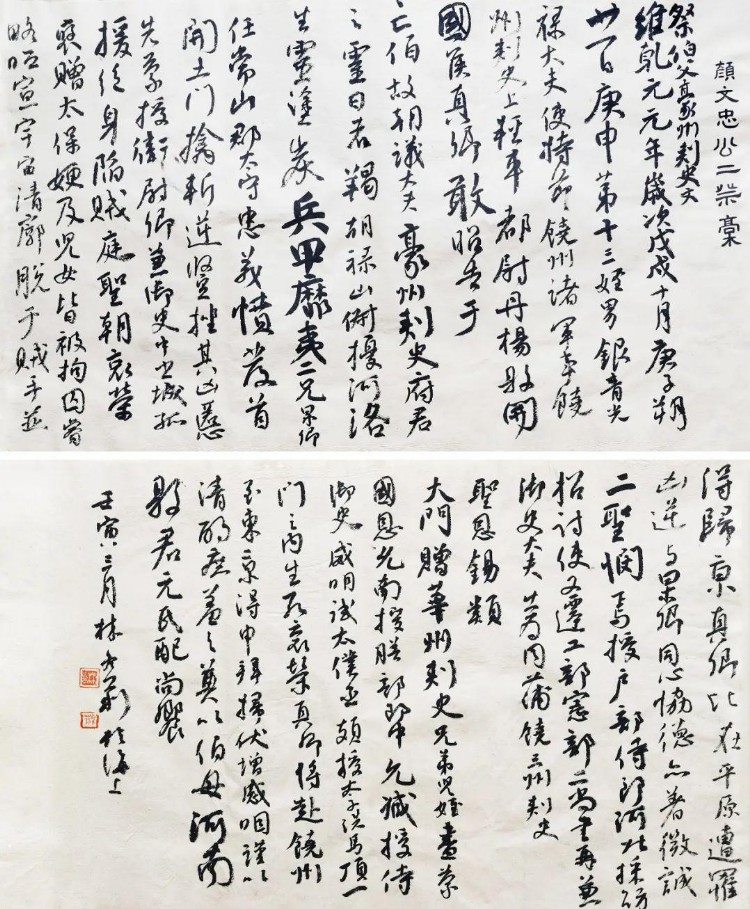 顏文忠公二祭稾
祭伯父豪州刺史文
維乾元元年歲次戊戌十月庚子朔
廿一日庚申第十三姪男銀青光
祿大夫使持節饒州諸軍事饒
州刺史上輕車都尉丹楊縣開
國侯真卿敢昭告于
亡伯故朝議大夫豪州刺史府君
之靈曰者羯胡祿山俶擾河洛
生靈塗炭兵甲靡夷二兄杲卿
任常山郡太守忠義憤發首
開土門擒斬逆豎挫其凶慝
先蒙授衛尉卿兼御史中丞城孤
援絕身陷賊庭聖朝哀榮
褒贈太保嫂及兒女皆被拘囚當
時咍宣宇宙清廓脫于賊手並
得歸京真卿比在平原遭罹
凶逆與杲卿同心協德亦著微誠
二聖憫焉授戶部侍郎河北採訪
招討使又遷工部憲部二尚書再兼
御史大夫出為同蒲饒三州刺史
聖恩錫類
大門贈華州刺史兄弟兒姪盡蒙
國恩允南授膳部郎中允臧授侍
御史威明試太僕丞頗授太子洗馬頂一
門之內生死哀榮真卿將赴饒州
至東京得申拜掃伏增感咽謹以
清酌庶羞之奠以伯母河南
縣君元氏配尚饗
壬寅三月林於海上